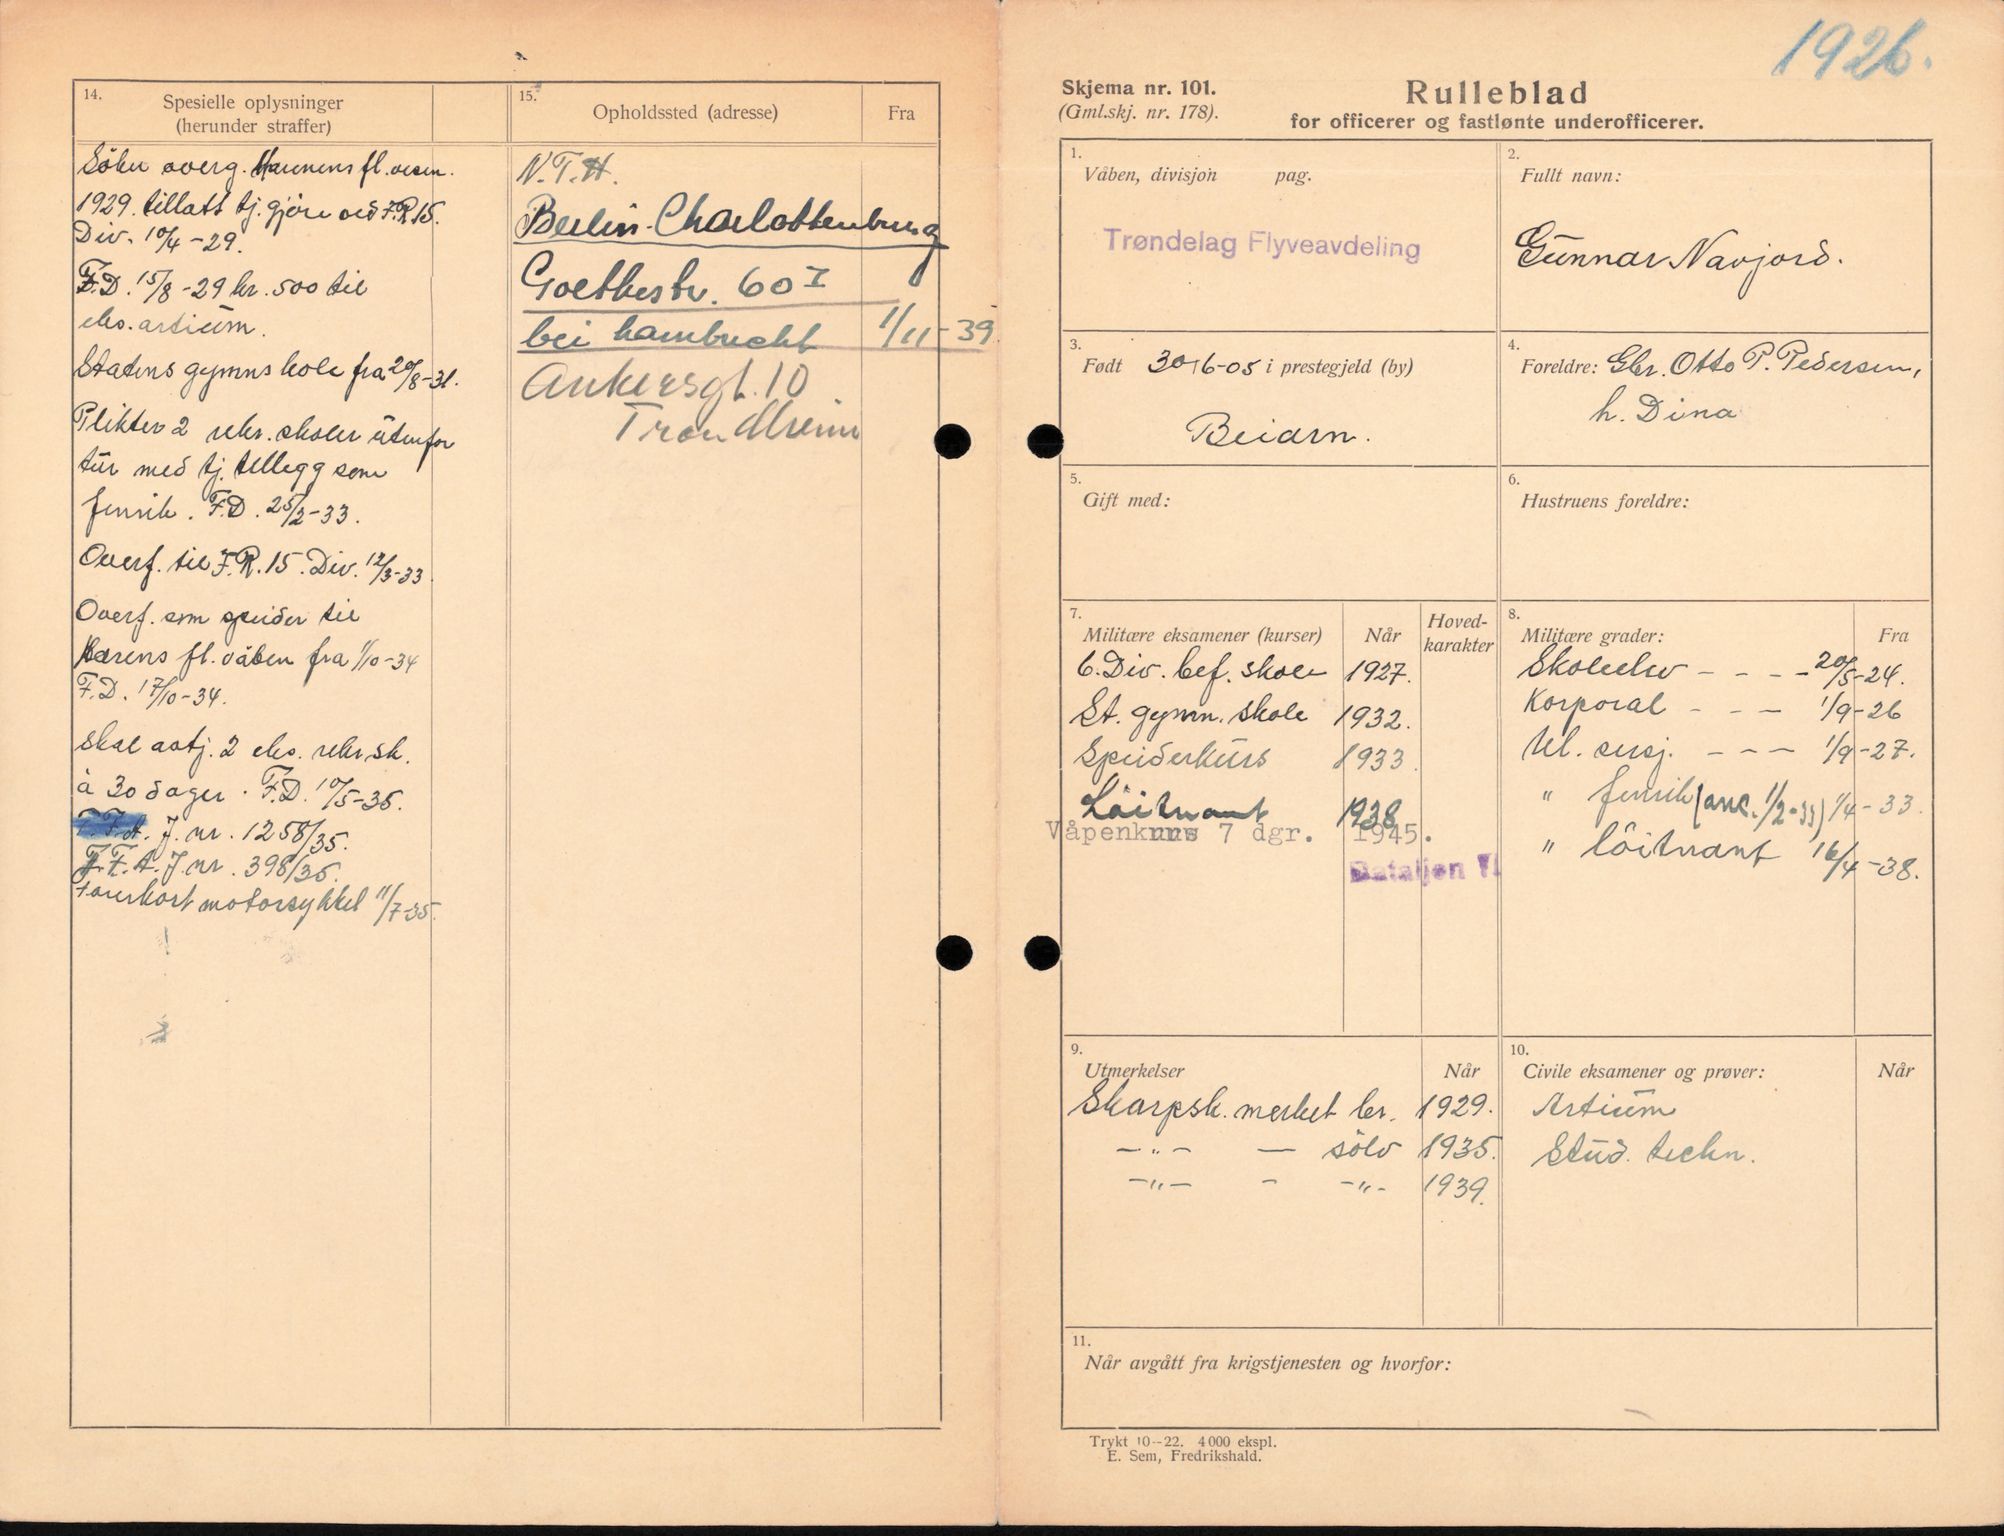 14.
Spesielle oplysninger
(herunder straffer)
Søker overg. Hærens fl. vesen.
1929. tillatt tj.gjøre ved I.R.15.
Div. 10/4-29.
F.D. 15/8-29 kr. 500 til
eks. artium.
Statens gymnskole fra 20/8-31.
Plikter 2 rekr. skoler utenfor
tur med tj. tillegg som
fenrik. F.D. 25/2-33.
Overf. til I.R.15. Div. 12/3-33
Overf. som speider til
Hærens fl. våben fra 1/10-34
F.D. 17/10-34.
skal avtj. 2 eks. rekr.sk.
à 30 dager. F.D. 10/5-35.
T.F.A. J. nr. 1258/35.
T.F.A. J. nr. 398/36.
Førerkort motorsykkel 11/7-35.
15.
Opholdssted (adresse)
Fra
N.T.H.
Berlin-Charlottenburg
Goethestr. 60 I
bei 1/11-39.
Ankersgt. 10
Trondheim
1926.
Skjema nr. 101.
(Gml.skj. nr. 178).
Rulleblad
for officerer og fastlønte underofficerer.
1.
Våben, divisjon pag.
Trøndelag Flyveavdeling
2.
Fullt navn:
Gunnar Navjord.
3.
Født 30/6-05 i prestegjeld (by)
Beiarn.
4.
Foreldre: Gbr. Otto P. Pedersen,
h. Dina
5.
Gift med:
6.
Hustruens foreldre:
7.
Militære eksamener (kurser) Når Hoved-
karakter
6. Div. bef. skole 1927.
St. gymn. skole 1932.
Speiderkurs 1933.
Løitnant 1938
Våpenkurs 7 dgr. 1945.
Bataljon
8.
Militære grader: Fra
Skoleelev - - - - 20/5-24.
Korporal - - - 1/9-26
Ul. sersj. - - - 1/9-27.
" fenrik (anc. 1/2-33) 1/4-33.
" løitnant 16/4-38.
9.
Utmerkelser Når
Skarpsk. merket br. 1929.
-"- — sølv 1935.
-"- - -"- 1939.
10.
Civile eksamener og prøver: Når
Artium
Stud. techn.
11.
Når avgått fra krigstjenesten og hvorfor:
Trykt 10--22. 4000 ekspl.
E. Sem, Fredrikshald.